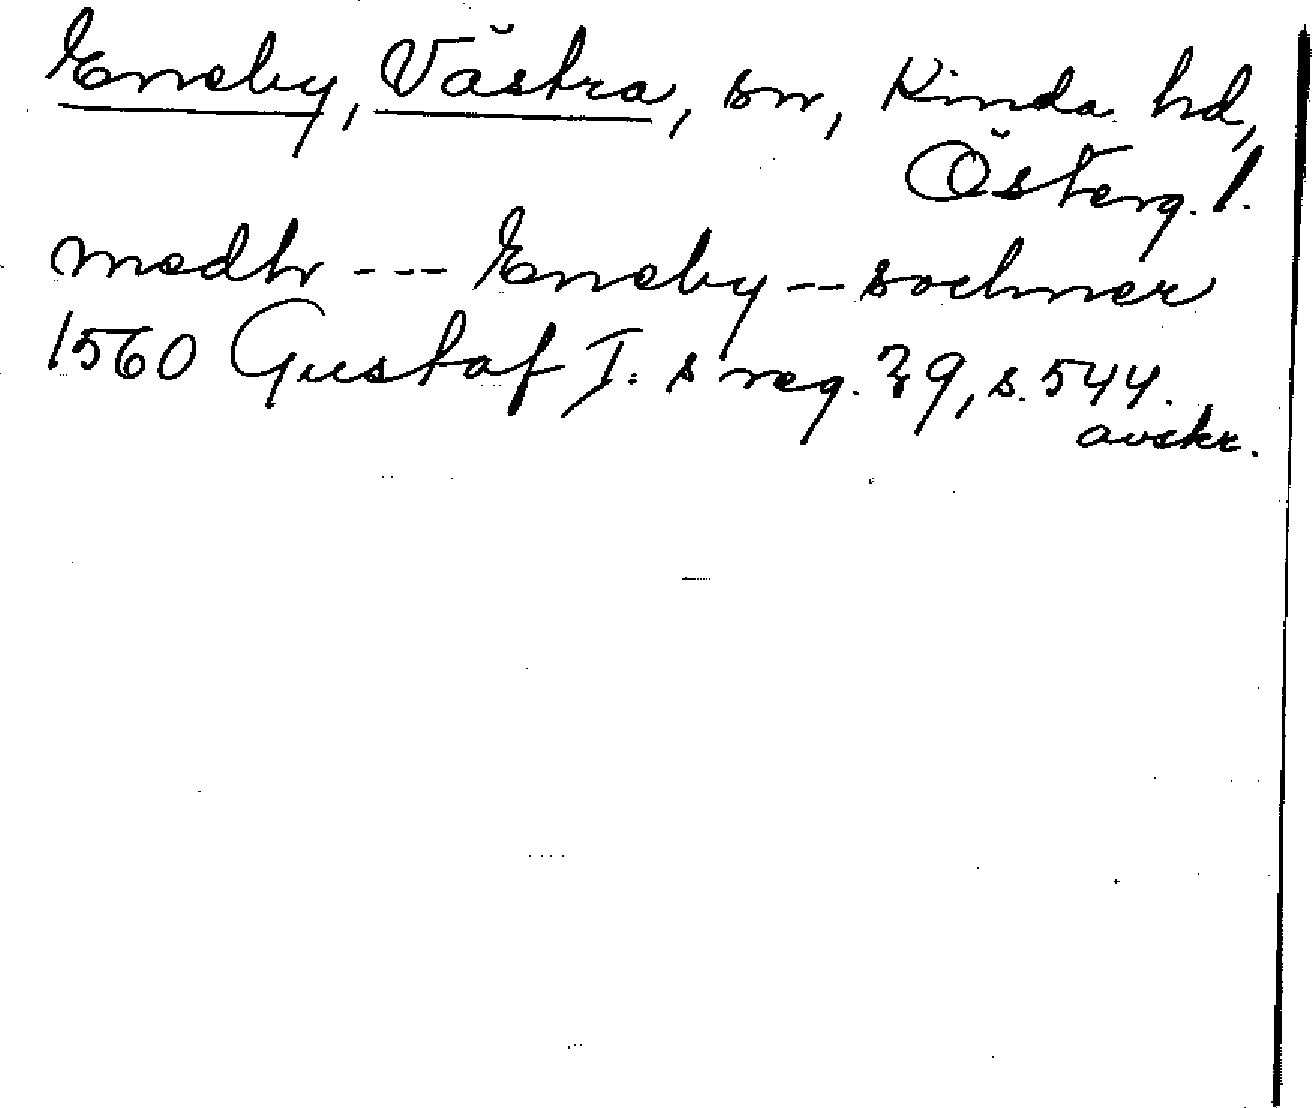 Eneby, Västra, sn, Kinda hd,
Österg. l.
medh --- Eneby -- sochner
1560 Gustaf I: s reg. 29, s. 544.
avskr.